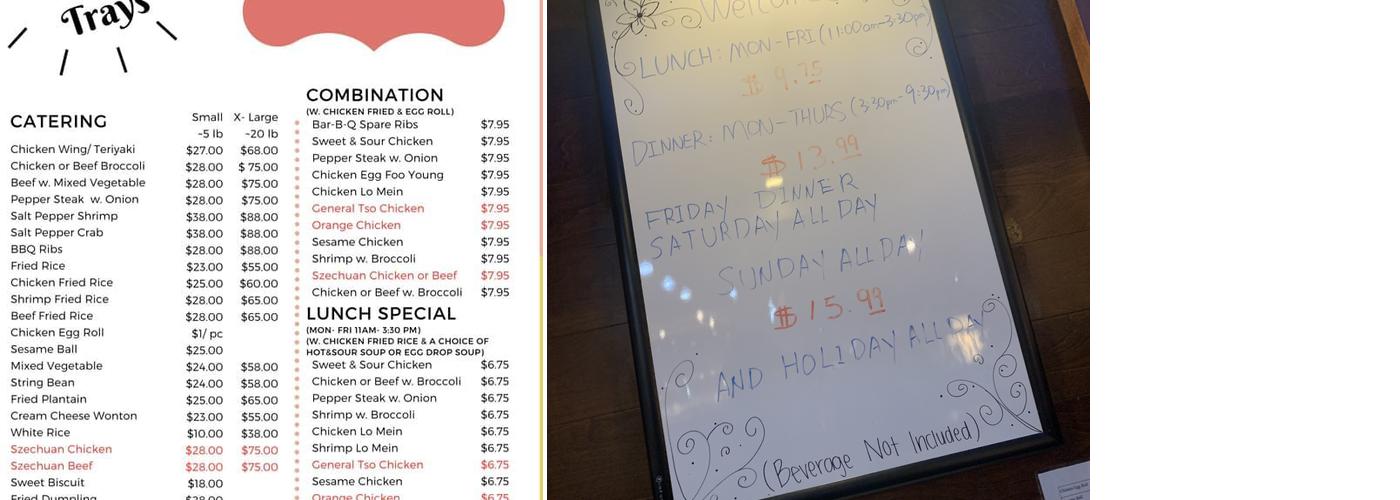 Trays
CATERING
Small X- Large
~5 lb ~20 lb
Chicken Wing/ Teriyaki $27.00 $68.00
Chicken or Beef Broccoli $28.00 $ 75.00
Beef w. Mixed Vegetable $28.00 $75.00
Pepper Steak w. Onion $28.00 $75.00
Salt Pepper Shrimp $38.00 $88.00
Salt Pepper Crab $38.00 $88.00
BBQ Ribs $28.00 $88.00
Fried Rice $23.00 $55.00
Chicken Fried Rice $25.00 $60.00
Shrimp Fried Rice $28.00 $65.00
Beef Fried Rice $28.00 $65.00
Chicken Egg Roll $1/ pc
Sesame Ball $25.00
Mixed Vegetable $24.00 $58.00
String Bean $24.00 $58.00
Fried Plantain $25.00 $65.00
Cream Cheese Wonton $23.00 $55.00
White Rice $10.00 $38.00
Szechuan Chicken $28.00 $75.00
Szechuan Beef $28.00 $75.00
Sweet Biscuit $18.00
Fried Dumpling $28.00
COMBINATION
(W. CHICKEN FRIED & EGG ROLL)
Bar-B-Q Spare Ribs $7.95
Sweet & Sour Chicken $7.95
Pepper Steak w. Onion $7.95
Chicken Egg Foo Young $7.95
Chicken Lo Mein $7.95
General Tso Chicken $7.95
Orange Chicken $7.95
Sesame Chicken $7.95
Shrimp w. Broccoli $7.95
Szechuan Chicken or Beef $7.95
Chicken or Beef w. Broccoli $7.95
LUNCH SPECIAL
(MON- FRI 11AM- 3:30 PM)
(W. CHICKEN FRIED RICE & A CHOICE OF
HOT&SOUR SOUP OR EGG DROP SOUP)
Sweet & Sour Chicken $6.75
Chicken or Beef w. Broccoli $6.75
Pepper Steak w. Onion $6.75
Shrimp w. Broccoli $6.75
Chicken Lo Mein $6.75
Shrimp Lo Mein $6.75
General Tso Chicken $6.75
Sesame Chicken $6.75
Orange Chicken $6.75
LUNCH: MON-FRI (11:00am-3:30pm)
$ 9.75
DINNER: MON-THURS (3:30pm-9:30pm)
$ 13.99
FRIDAY DINNER
SATURDAY ALL DAY
SUNDAY ALL DAY
$ 15.99
AND HOLIDAY ALL DAY
(Beverage Not Included)